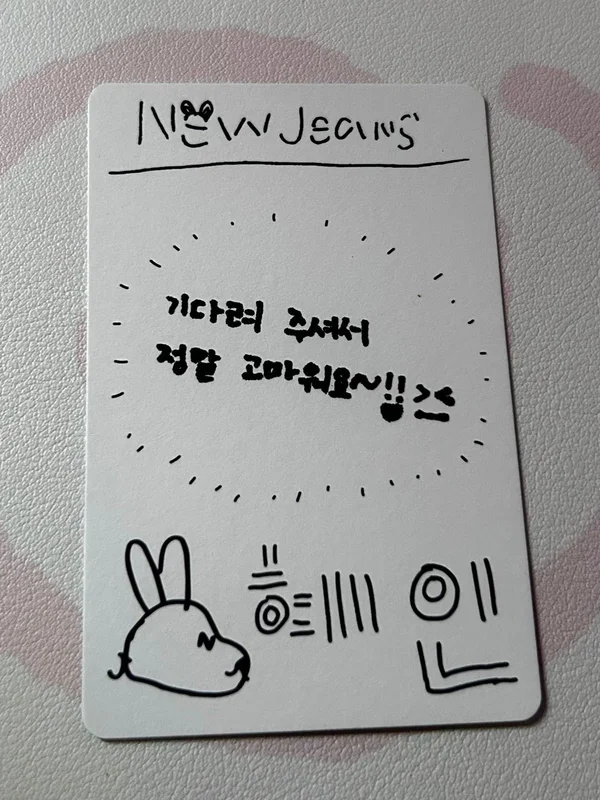 NEW Jeans
기다려 주셔서
정말 고마워요~!! >_<
N
혜인